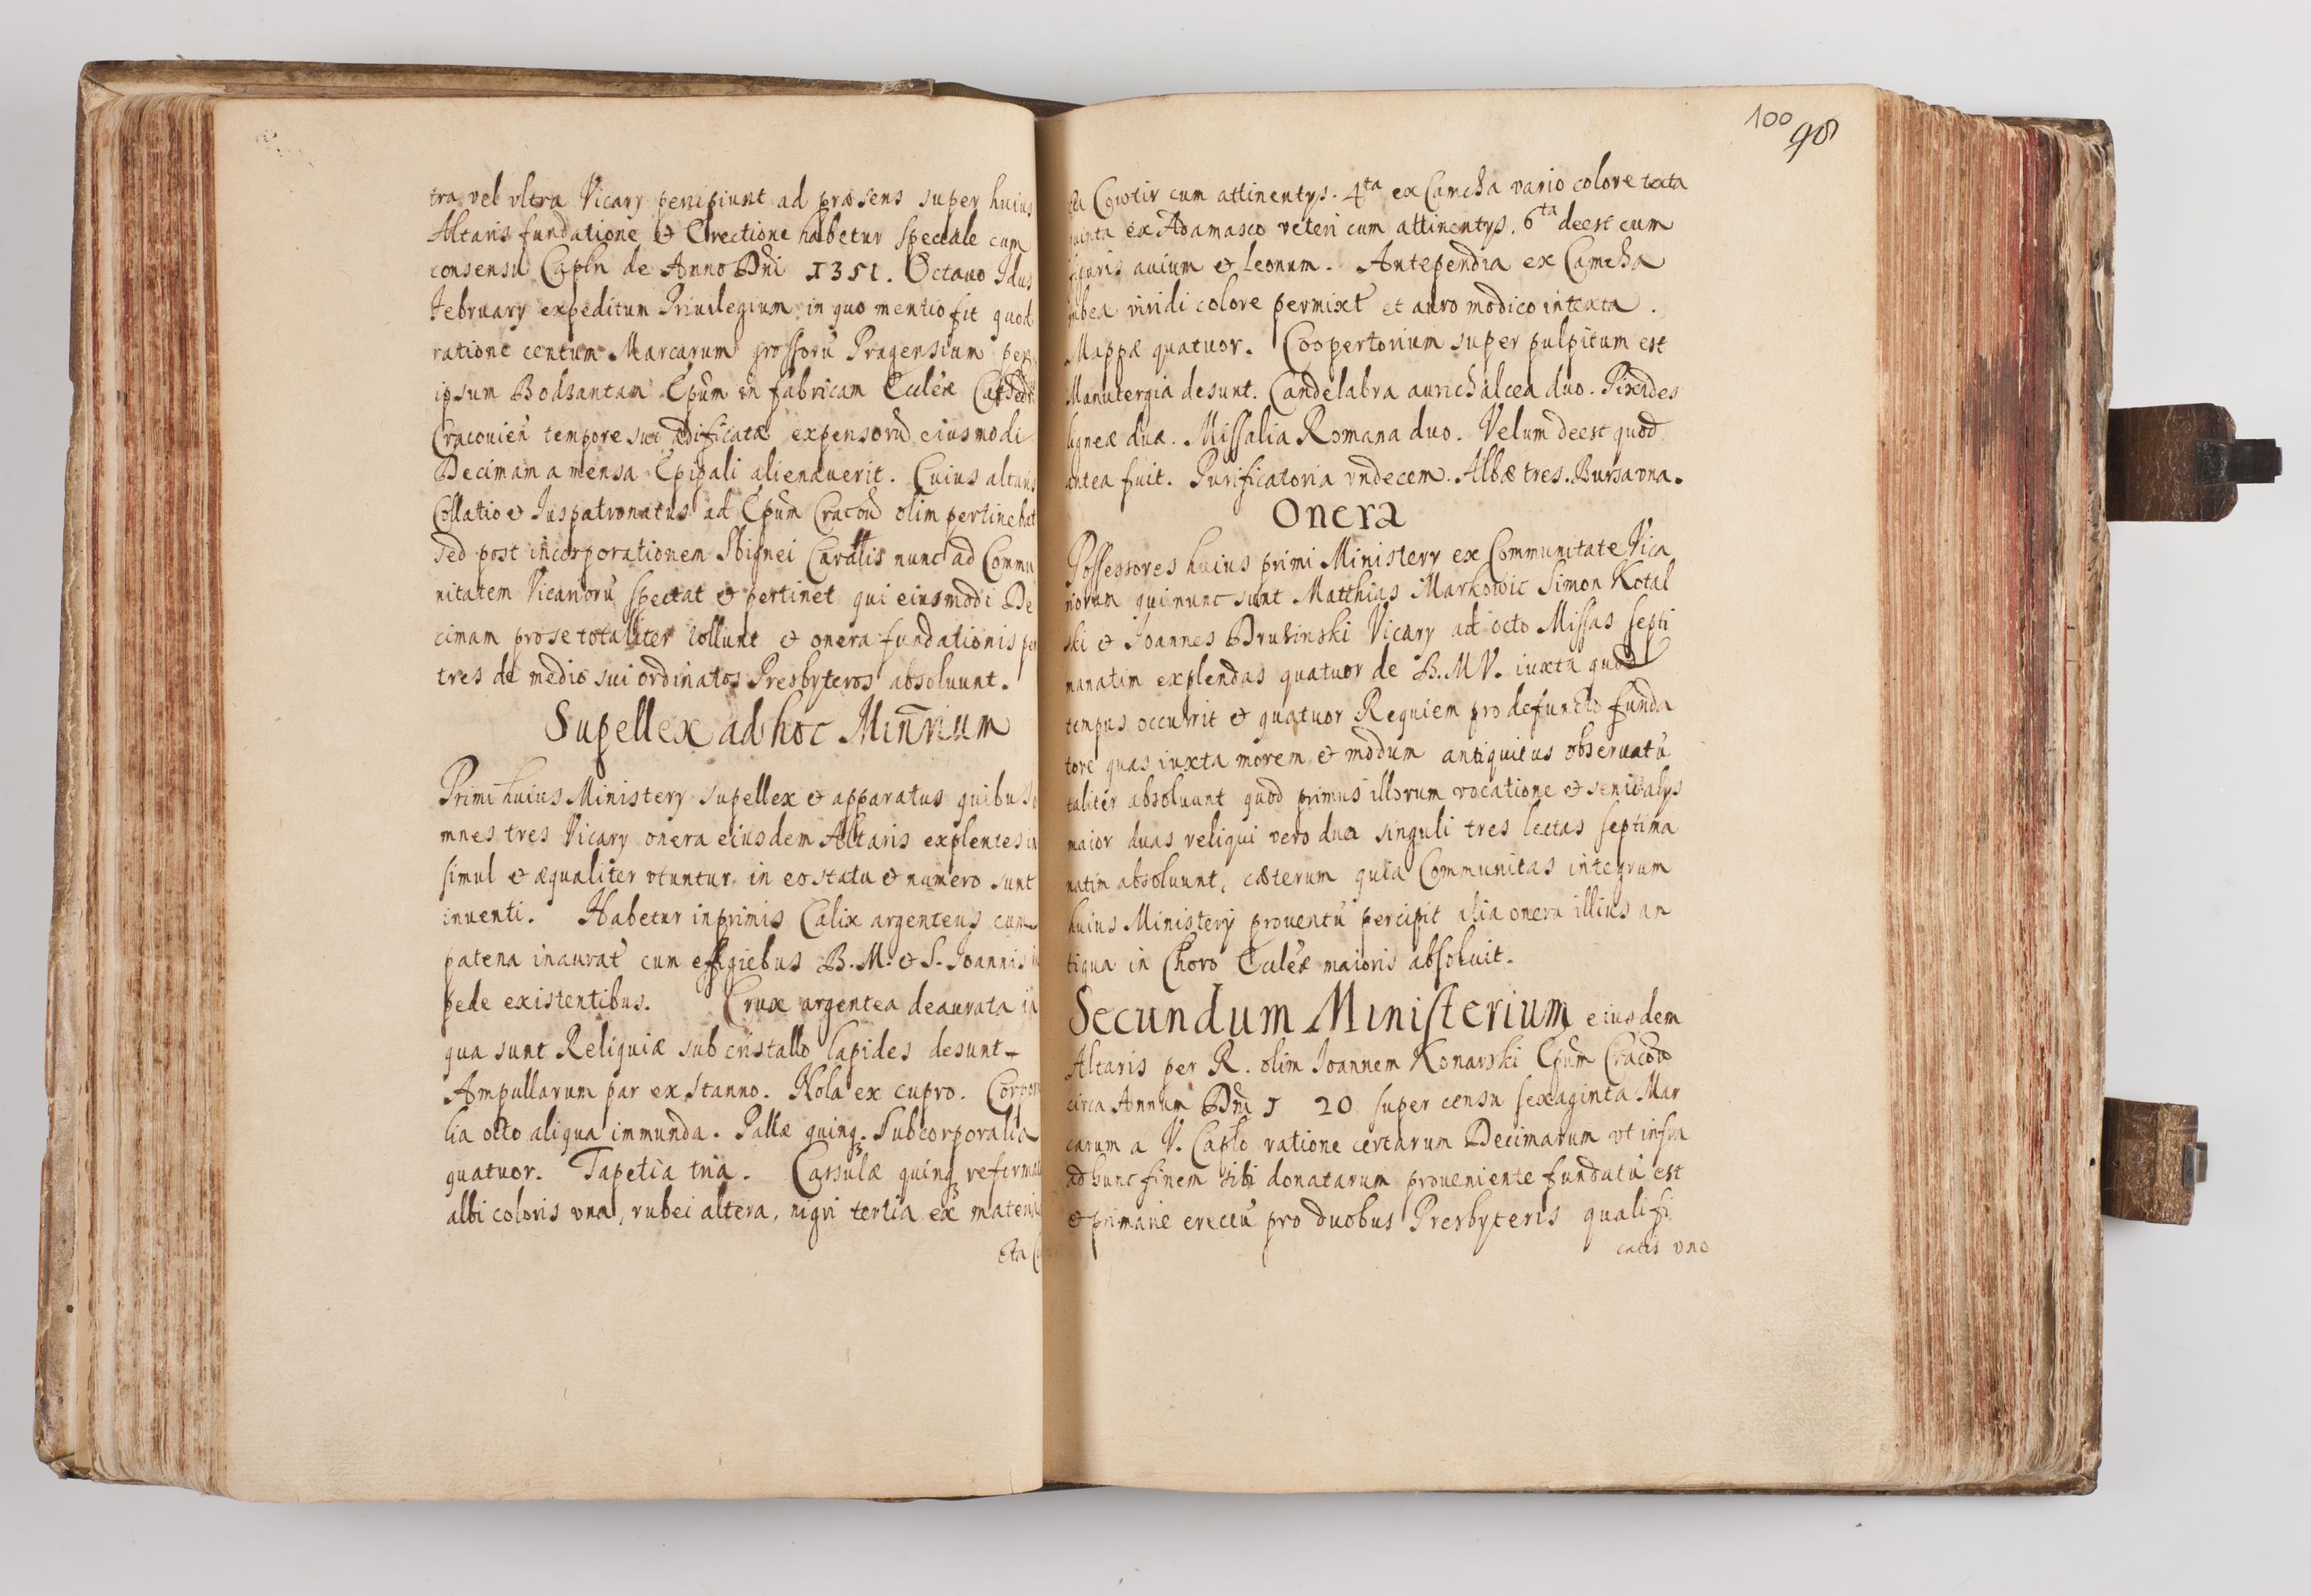 tra vel vltra Vicary percipiunt ad præsens super huius
Altaris fundatione & Erectione habetur speciale cum
consensu Capln de Anno Dni 1351. Octauo Idus
February expeditum Priuilegium in quo mentio fit quod
ratione centum Marcarum grossorū Pragensium per
ipsum Bodzantam Epum in fabricam Eccleæ Cathedr
Cracouien tempore sui ædificatæ expensorū eiusmodi
Decimam a mensa Epipali alienauerit. Cuius altaris
Collatio & Iuspatronatus ad Epum Cracou olim pertinebat
sed post incorporationem Sbignei Cardlis nunc ad Commu
nitatem Vicariorū spectat & pertinet qui eiusmodi De
cimam pro se totaliter tollunt & onera fundationis per
tres de medio sui ordinatos Presbyteros absoluunt.
Supellex ad hoc Minrium
Primi huius Ministery supellex & apparatus quibus o
mnes tres Vicary onera eiusdem Altaris explentes in
simul & æqualiter vtuntur in eo statu & numero sunt
inuenti. Habetur inprimis Calix argenteus cum
patena inaurat cum effigiebus B. M. & S. Joannis in
pede existentibus. Crux argentea deaurata in
qua sunt Reliquiæ sub cristallo lapides desunt
Ampullarum par ex stanno. Nola ex cupro. Corpora
lia octo aliqua immunda. Pallæ quinq. Subcorporalia
quatuor. Tapetia tria. Cassulæ quinq reformat
albi coloris vna, rubei altera, nigri tertia ex materia
100
98
Czotir cum attinentys. 4ta ex Camcha vario colore texta
quinta ex Adamasco veteri cum attinentys. 6ta deest cum
figuris auium & leonum. Antependia ex Camcha
rubea viridi colore permixt et auro modico intexta.
Mappæ quatuor. Coopertorium super pulpitum est
Manutergia desunt. Candelabra aurichalcea duo. Pixides
ligneæ duæ. Missalia Romana duo. Velum deest quod
antea fuit. Purificatoria vndecem. Albæ tres. Bursa vna.
Onera
Possessores huius primi Ministery ex Communitate Vica
riorum qui nunc sunt Matthias Markowic Simon Kotal
ski & Joannes Druzinski Vicary ad octo Missas septi
manatim explendas quatuor de B. M V. iuxta quod
tempus occurrit & quatuor Requiem pro defuncto funda
tore quas iuxta morem & modum antiquitus obseruatū
taliter absoluunt quod primus illorum vocatione &
maior duas reliqui vero duo singuli tres lectas septima
natim absoluunt, cæterum quia Communitas integrum
huius Ministerij prouentū percipit alia onera illius an
tiqua in Choro Eccleæ maioris absoluit.
Secundum Ministerium eiusdem
Altaris per R. olim Joannem Konarski Epum Cracou
circa Annum Dni 1 20 super censu sexaginta Mar
carum a V. Caplo ratione certarum Decimarum vt infra
ad hunc finem sibi donatarum proueniente fundatū est
& primarie erectū pro duobus Presbyteris qualifi
catis vno